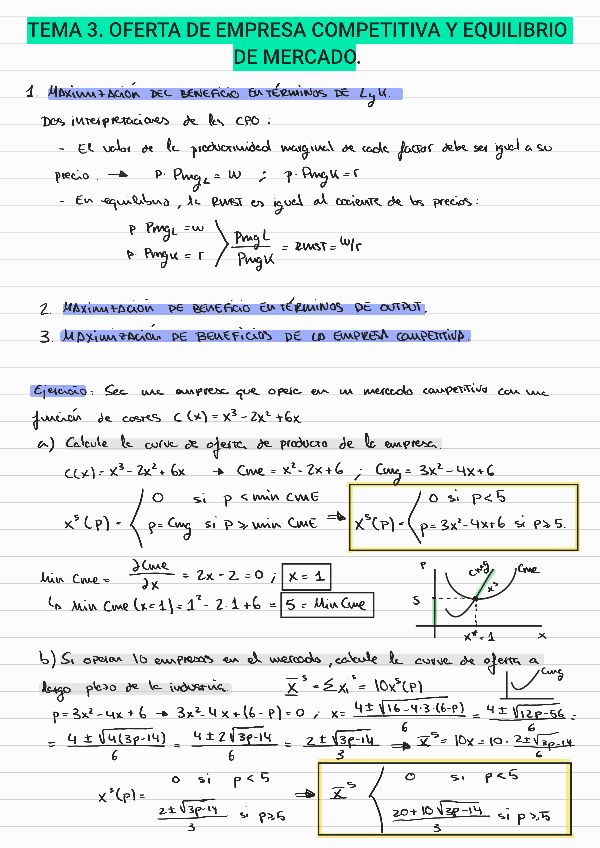 TEMA 3. OFERTA DE EMPRESA COMPETITIVA Y EQUILIBRIO
DE MERCADO.
1. MAXIMIZACIÓN DEL BENEFICIO EN TÉRMINOS DE L y K.
Dos interpretaciones de las CPO:
- El valor de la productividad marginal de cada factor debe ser igual a su
precio. → p· PmgL = w ; p· PmgK = r
- En equilibrio, la RMST es igual al cociente de los precios:
p PmgL = w
p· PmgK = r
PmgL/PmgK = RMST = w/r
2. MAXIMIZACIÓN DE BENEFICIO EN TÉRMINOS DE OUTPUT.
3. MAXIMIZACIÓN DE BENEFICIOS DE LA EMPRESA COMPETITIVA.
Ejercicio: Sea una empresa que opera en un mercado competitivo con una
función de costes C(x) = x³ - 2x² + 6x
a) Calcule la curva de oferta de producto de la empresa.
C(x) = x³ - 2x² + 6x → Cme = x² - 2x + 6 ; Cmg = 3x² - 4x + 6
xˢ(p) = 0 si p < min CmE
p = Cmg si p ≥ min CmE
⇒ xˢ(p) = 0 si p < 5
p = 3x² - 4x + 6 si p ≥ 5.
Min Cme = ∂Cme/∂x = 2x - 2 = 0 ; x = 1
↳ Min Cme (x=1) = 1² - 2·1 + 6 = 5 = Min Cme
P Cmg Cme
xˢ
5
x* = 1 x
b) Si operan 10 empresas en el mercado, calcule la curva de oferta a
largo plazo de la industria. X̄ˢ = Σxᵢˢ = 10xˢ(p)
Cmg
p = 3x² - 4x + 6 → 3x² - 4x + (6 - p) = 0 ; x = 4 ± √(16 - 4·3·(6-p)) / 6 = 4 ± √(12p - 56) / 6 =
= 4 ± √(4(3p-14)) / 6 = 4 ± 2√(3p-14) / 6 = 2 ± √(3p-14) / 3 ⇒ X̄ˢ = 10x = 10 · 2 ± √(3p-14) / 6
xˢ(p) = 0 si p < 5
2 ± √(3p-14) / 3 si p ≥ 5
⇒ X̄ˢ 0 si p < 5
20 + 10√(3p-14) / 3 si p ≥ 5